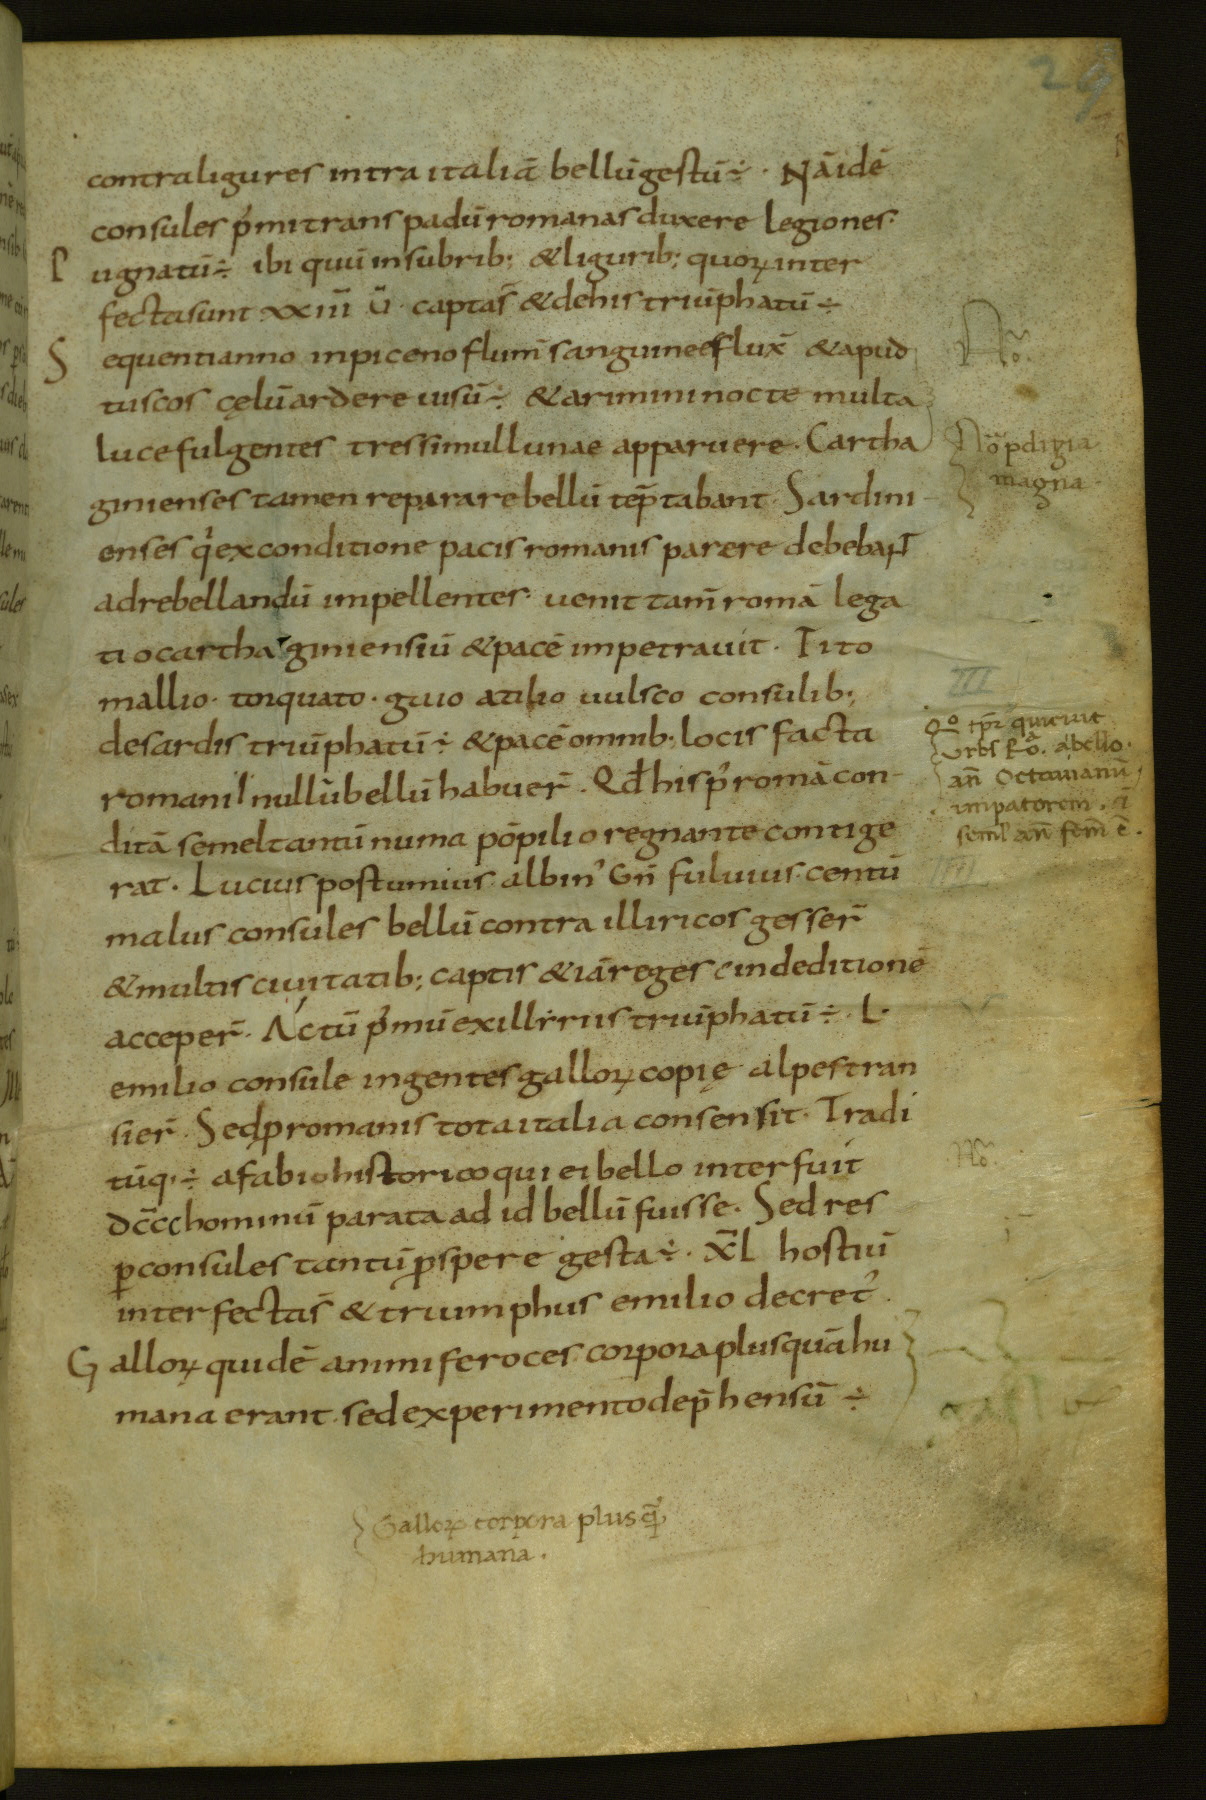 29
contra ligures intra italiā bellū gestū÷· Nā idē
consules p̓mi trans padū romanas duxere legiones·
Pugnatū÷ ibi quū insubrib; & ligurib; quoꝝ inter
fecta sunt xxiii ū· capta s̄ & de his triūphatū÷
Sequenti anno in piceno flum̄ sanguine efflux̄ & apud
tuscos cęlū ardere uisū÷ & arimini nocte multa
luce fulgentes tres simul lunae apparuere· Cartha
ginienses tamen reparare bellū tēptabant· Sardini-
enses q̓ ex conditione pacis romanis parere debebant
ad rebellandū impellentes· uenit tam̄ romā lega
tio carthaginiensiū & pacē impetrauit· Tito
mallio· torquato· gaio atilio uulsco consulib;
de sardis triūphatū÷ & pacē omnib; locis facta
romani nullū bellū habuer̄· Qđ his p̓ romā con-
ditā semel tantū numa pōpilio regnante contige
rat· Lucius postumius albin᾽ Gn̄ fuluius centū
malus consules bellū contra illiricos gesser̄
& multis ciuitatib; captis & iā reges in deditionē
acceper̄· Ac tū p̓mū ex illiriis triūphatū÷· L·
emilio consule ingentes galloꝝ copię alpes tran
sier̄· Sed ꝓ romanis tota italia consensit· Tradi
tūq·÷ a fabio historico qui ei bello interfuit
dc̄c̄c̄ hominū parata ad id bellū fuisse· Sed res
ꝑ consules tantū ꝓspere gesta÷· x̄l hostiū
interfecta s̄ & triumphus emilio decret᾽
Galloꝝ quidē animi feroces corpora plusquā hu
mana erant· sed experimento dep̄hensū÷
Nō.
Nō pdigia
magna
III
Qo tp̄r quieuit
vrbs Rō. a bello·
an̄ Octauianū
impatorem, ī
seml̄ an̄ sem̄ ē.
IIII
Nō
Galloꝝ corpora plus qᷓ
humana.